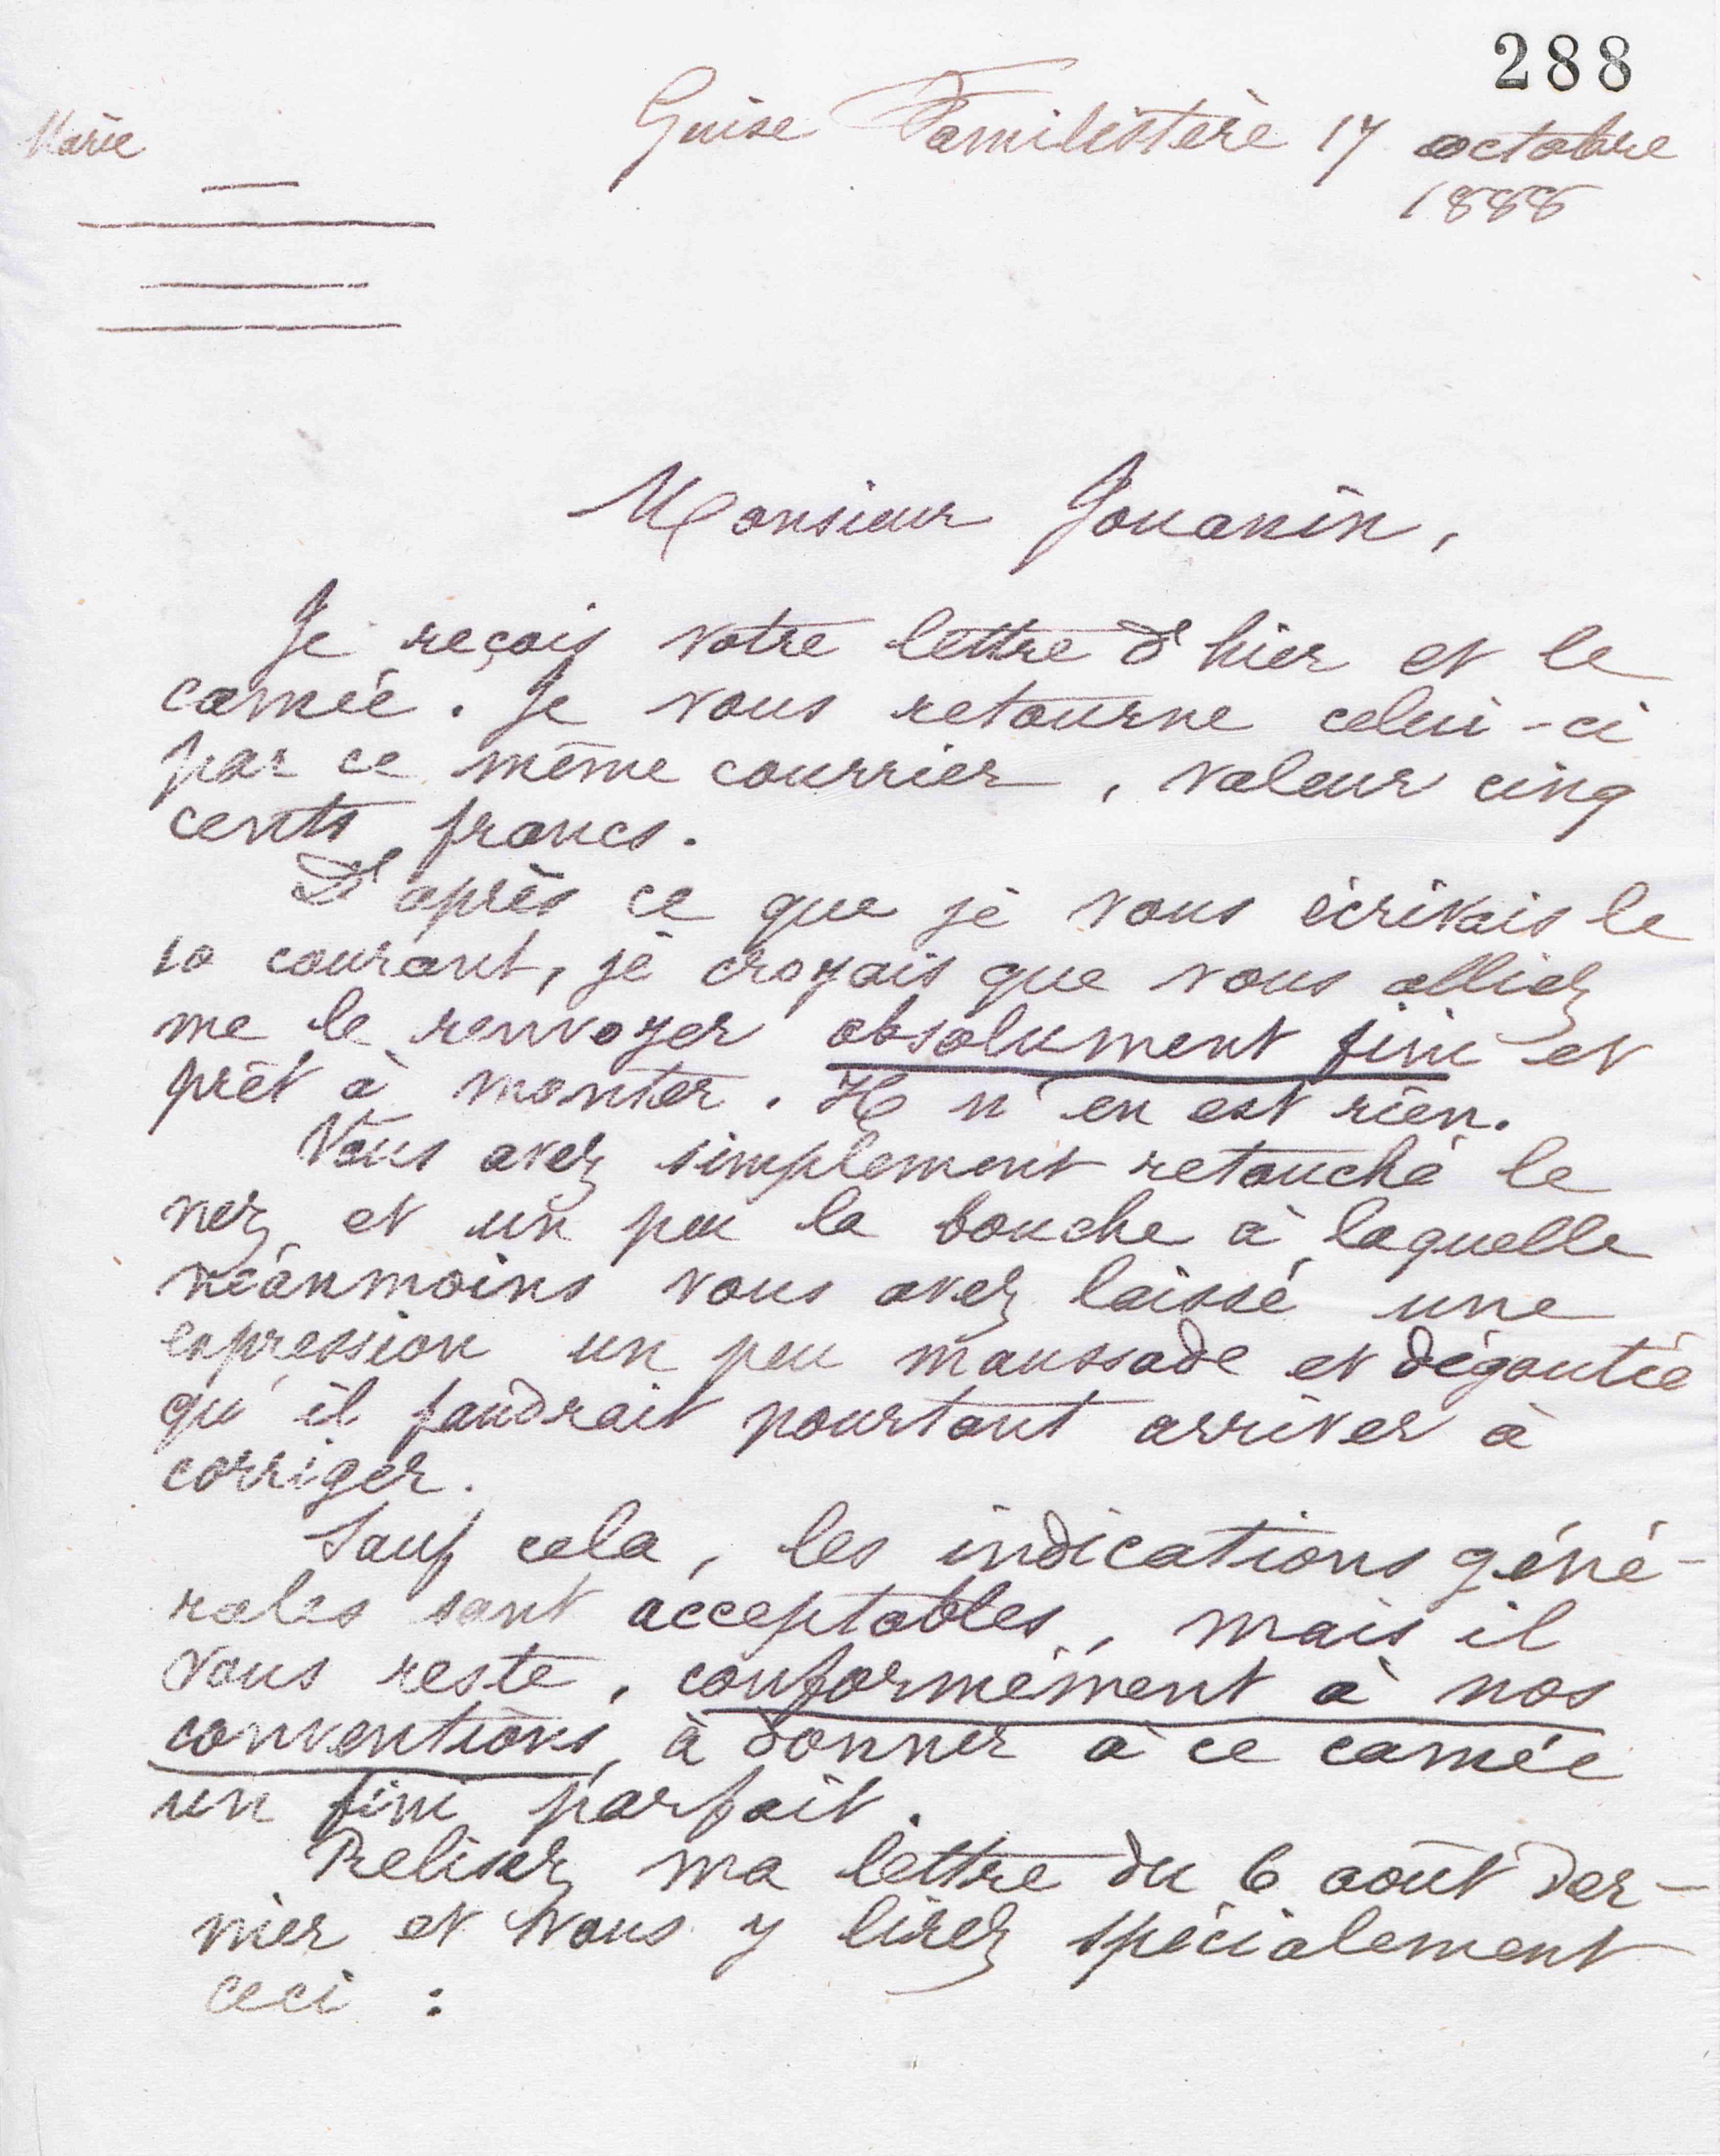 288
Marie
Guise Familistère 17 octobre
1888
Monsieur Jouanin,
Je reçois votre lettre d'hier et le
camée. Je vous retourne celui-ci
par ce même courrier, valeur cinq
cents francs.
D'après ce que je vous écrivais le
10 courant, je croyais que vous alliez
me le renvoyer absolument fini et
prêt à monter. Il n'en est rien.
Vous avez simplement retouché le
nez et un peu la bouche à laquelle
néanmoins vous avez laissé une
expression un peu maussade et dégoutée
qu'il faudrait pourtant arriver à
corriger.
Sauf cela, les indications géné-
rales sont acceptables, mais il
vous reste, conformément à nos
conventions, à donner à ce camée
un fini parfait.
Relisez ma lettre du 6 août der-
nier et vous y lirez spécialement
ceci :